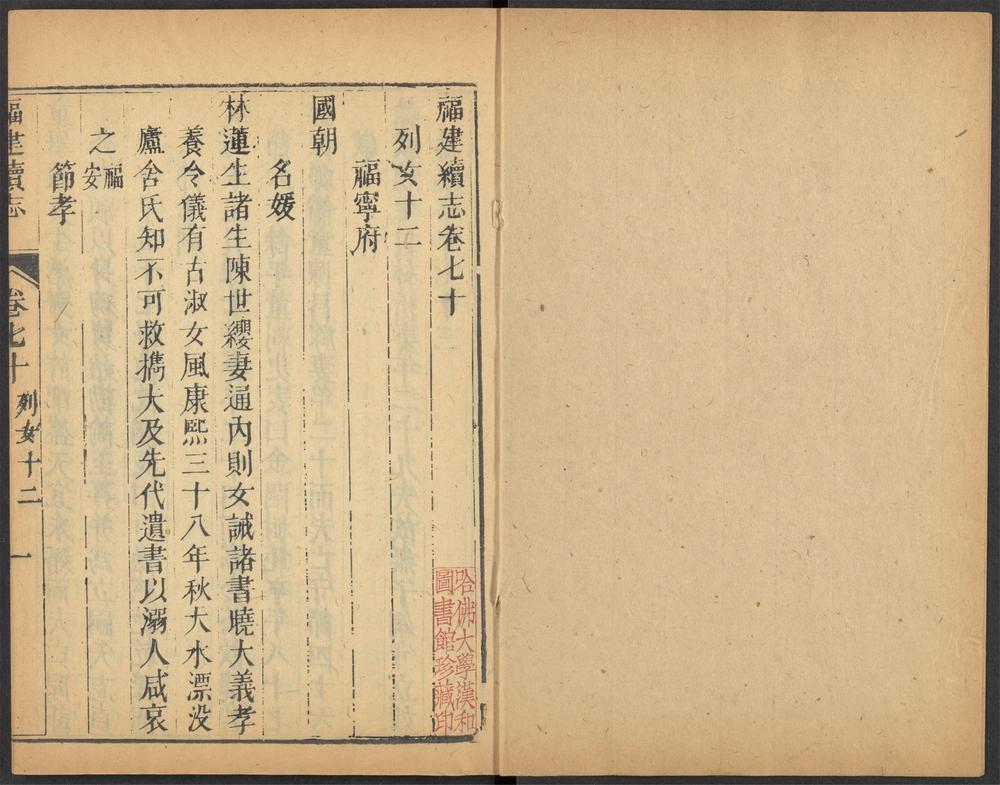 福建續志卷七十
列女十二
福寧府
國朝
名媛
林蓮生諸生陳世纓妻通內則女誡諸書曉大義孝
養令儀有古淑女風康熙三十八年秋大水漂没
廬舍氏知不可救携大及先代遺書以溺人咸哀
之福安
節孝
福建續志
卷七十
列女十二
一
哈佛大學漢和
圖書館珍藏印